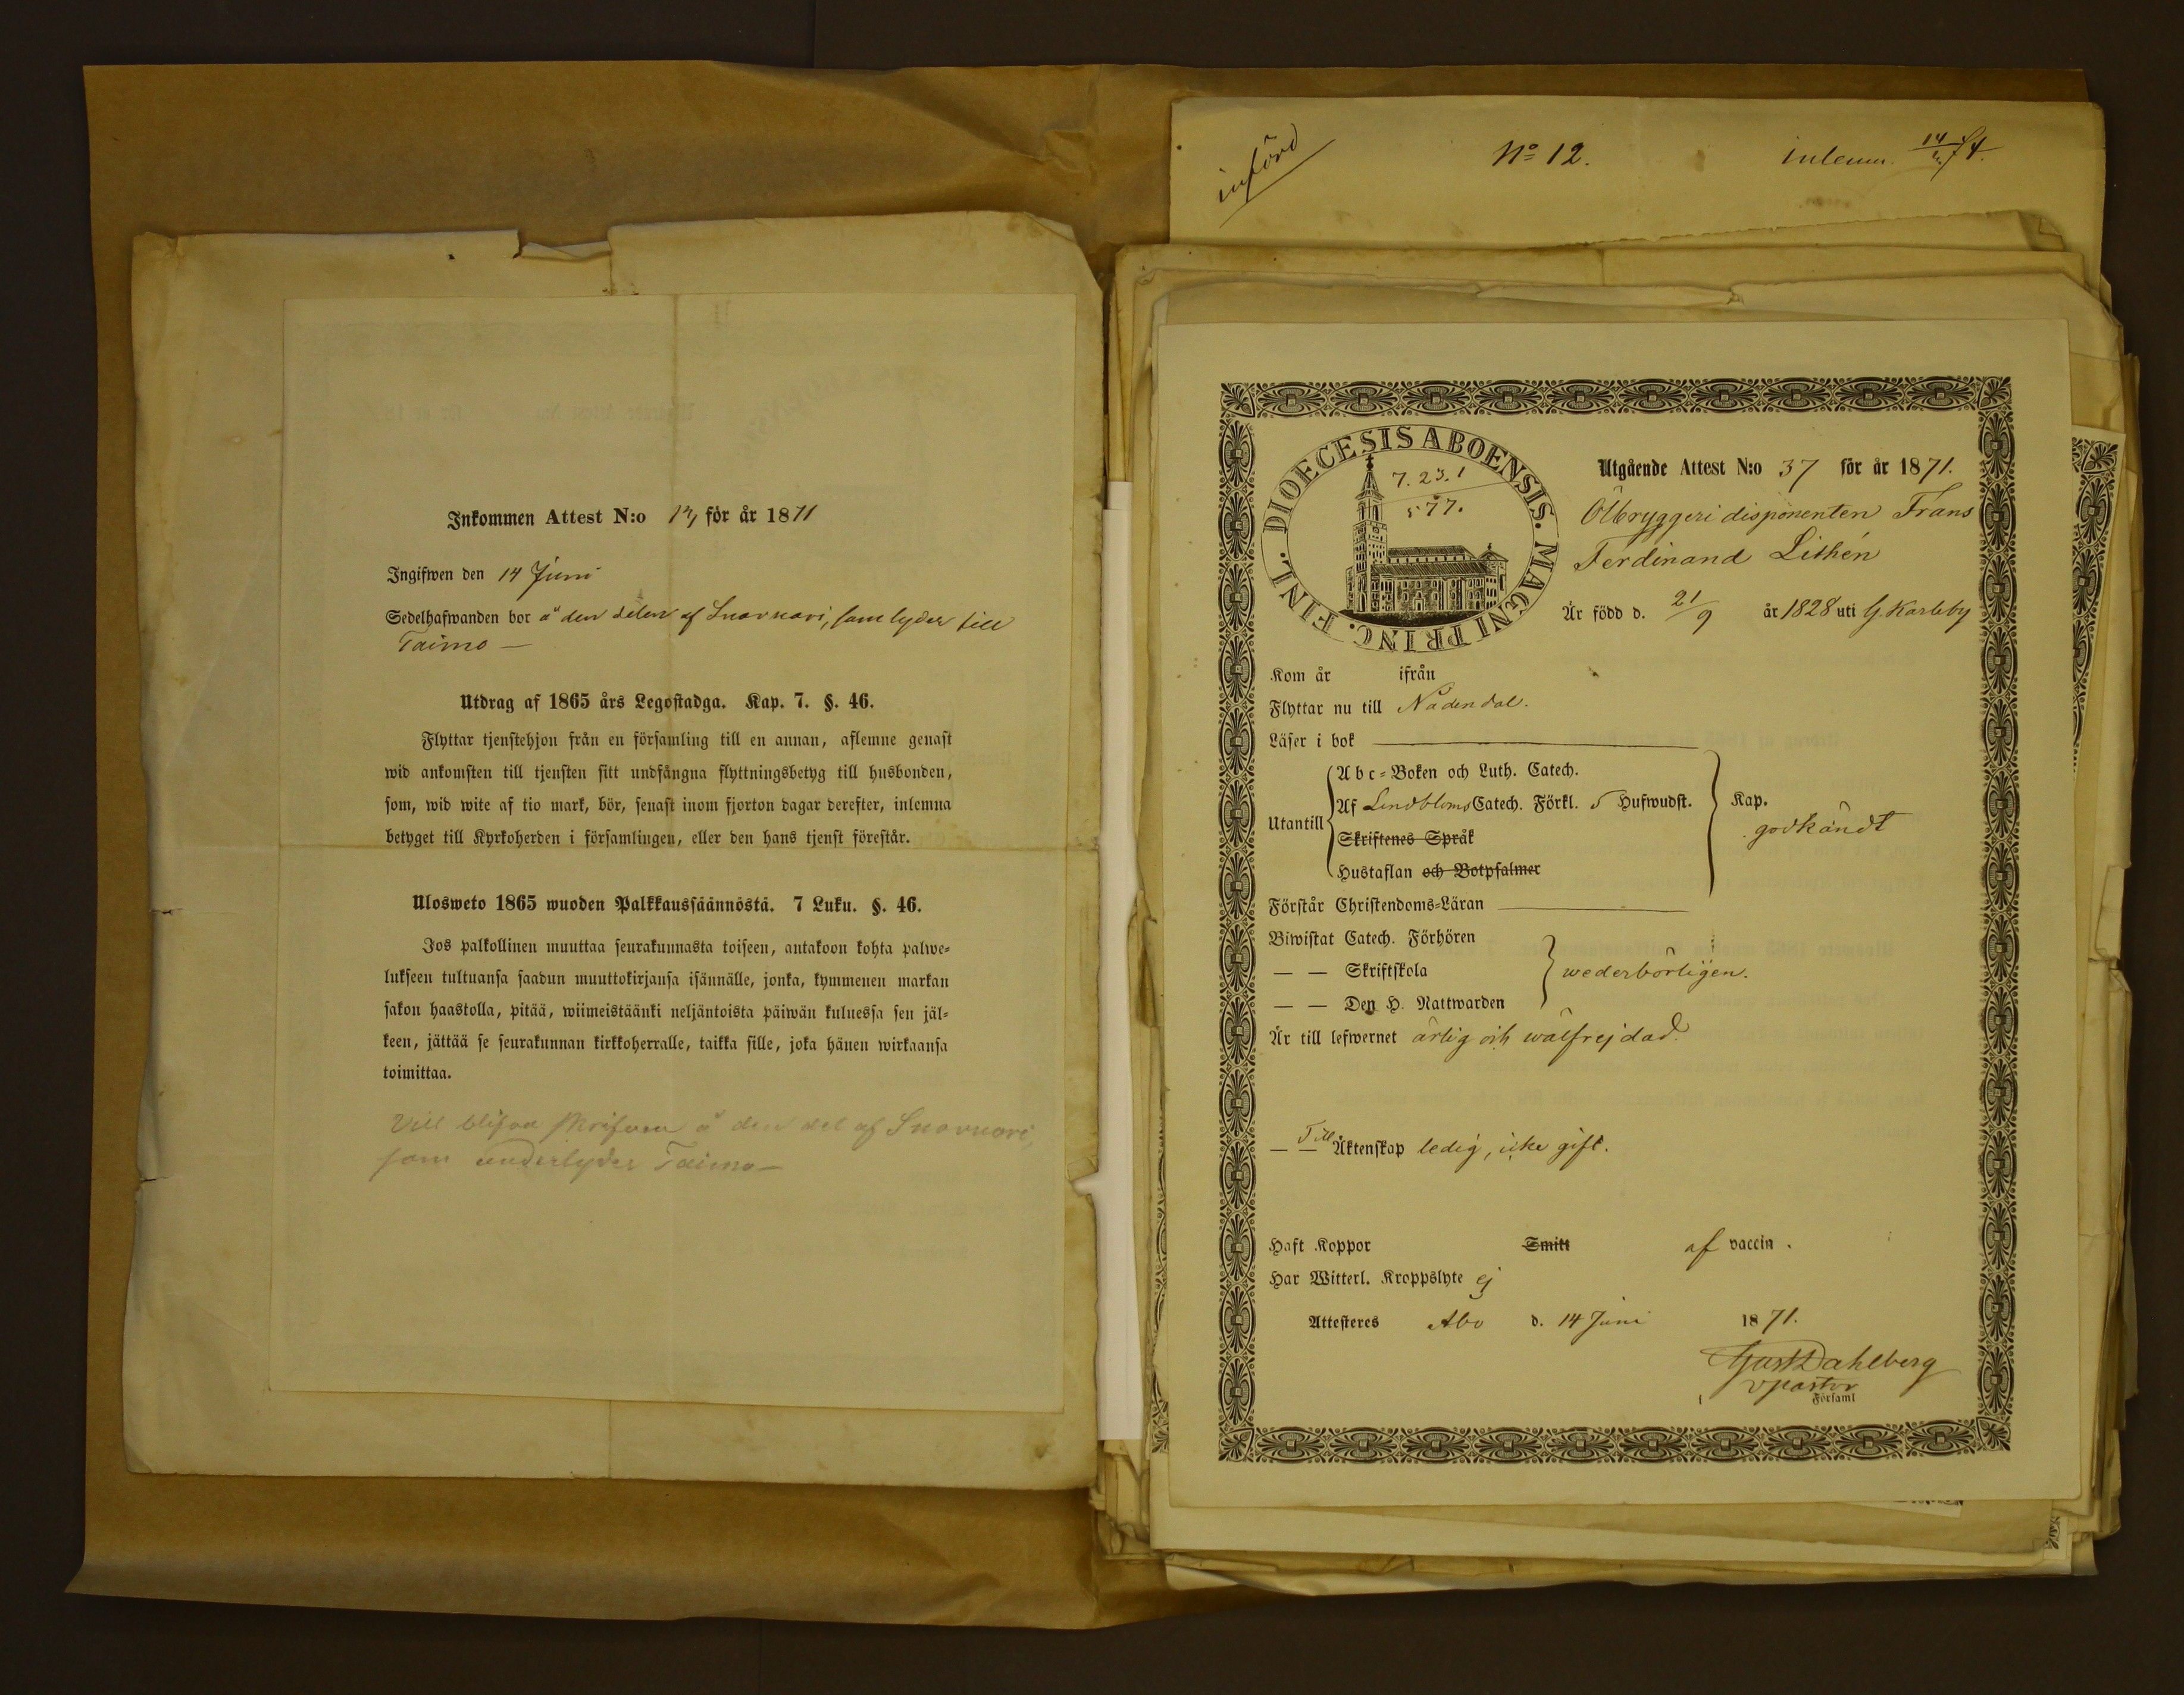 Inkommen Attest N:o 14 för år 1871
Ingifwen den 14 Juni
Sedelhafwanden bor å den delen af Snornori, som lyder till
Taimo —
Utdrag af 1865 års Legostadga. Kap. 7. §. 46.
Flyttar tjenstehjon från en församling till en annan, aflemne genast
wid ankomsten till tjensten sitt undfångna flyttningsbetyg till husbonden,
som, wid wite af tio mark, bör, senast inom fjorton dagar derefter, inlemna
betyget till Kyrkoherden i församlingen, eller den hans tjenst förestår.
Ulosweto 1865 wuoden Palkkaussäännöstä. 7 Luku. §. 46.
Jos palkollinen muuttaa seurakunnasta toiseen, antakoon kohta palwe=
lukseen tultuansa saadun muuttokirjansa isännälle, jonka, kymmenen markan
sakon haastolla, pitää, wiimeistäänki neljäntoista päiwän kuluessa sen jäl=
keen, jättää se seurakunnan kirkkoherralle, taikka sille, joka hänen wirkaansa
toimittaa.
Vill blifva skrifven å den del af Snornori,
som underlyder Taimo —
införd
No 12.
inlemn. 14/ 74.
DIOECESIS ABOENSIS. MAGNI PRINC. FINL.
7. 23. 1
577.
Utgående Attest N:o 37 för år 1871.
Ölbryggeri disponenten Frans
Ferdinand Lithén
Är född d. 21/9 år 1828 uti G. Karleby
Kom år ifrån
Flyttar nu till Nådendal.
Läser i bok
Utantill
A b c=Boken och Luth. Catech.
Af Lindbloms Catech. Förkl. 5 Hufwudst.
Skriftenes Språk
Hustaflan och Botpsalmer
Kap.
godkändt
Förstår Christendoms=Läran
Biwistat Catech. Förhören
— — Skriftskola
wederbörligen.
— — Den H. Nattwarden
Är till lefwernet ärlig och wälfrejdad.
— — Till Äktenskap ledig, icke gift.
Haft Koppor Smitt af vaccin.
Har Witterl. Kroppslyte ej
Attesteras Åbo d. 14 Juni 1871.
Gust Dahlberg
v pastor
Församl